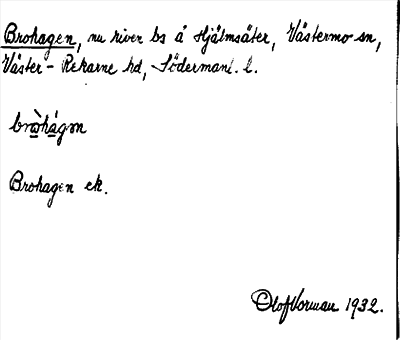 Brohagen, nu riven bs å Hjälmsäter, Västermo sn,
Väster-Rekarne hd, Södermanl. l.
bro̱hàgən
Brohagen ek.
Olof Vorman 1932.